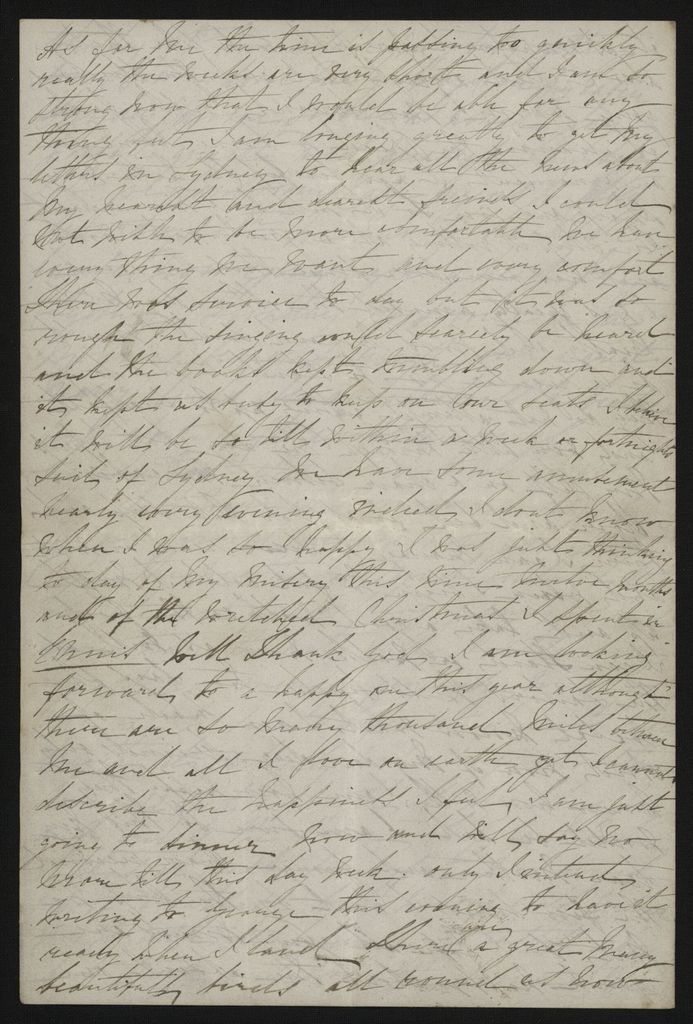 As for me the time is passing too quickly
really the weeks are very short and I am so
strong now that I would be able for any
thing yet I am longing greatly to get my
letters in Sydney to hear all the news about
my nearest and dearest friends I could
not wish to be more comfortable we have
every thing we want and every comfort
There was service to day but it was so
rough the singing could scarcely be heard
and the books kept tumbling down and
it kept us busy to keep on our seats I believe
it will be so till within a week or fortnights
sail of Sydney We have some amusement
nearly every evening indeed I dont know
when I was so happy I was just thinking
to day of my misery this time twelve months
and of the wretched Christmas I spent in
Ennis Well Thank God I am looking
forward to a happy one this year although
there are so many thousand miles between
me and all I love on earth yet I cannot
describe the happiness I feel, I am just
going to dinner now and will say no
more till this day week. only I intend
writing to George this evening to have it
ready when I land There are a great many
beautiful birds all round us now